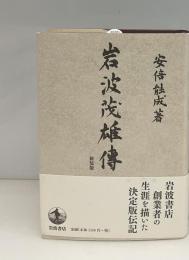 安倍能成著
岩波茂雄傳
新装版
岩波書店
創業者の
生涯を描いた
決定版伝記
岩波書店